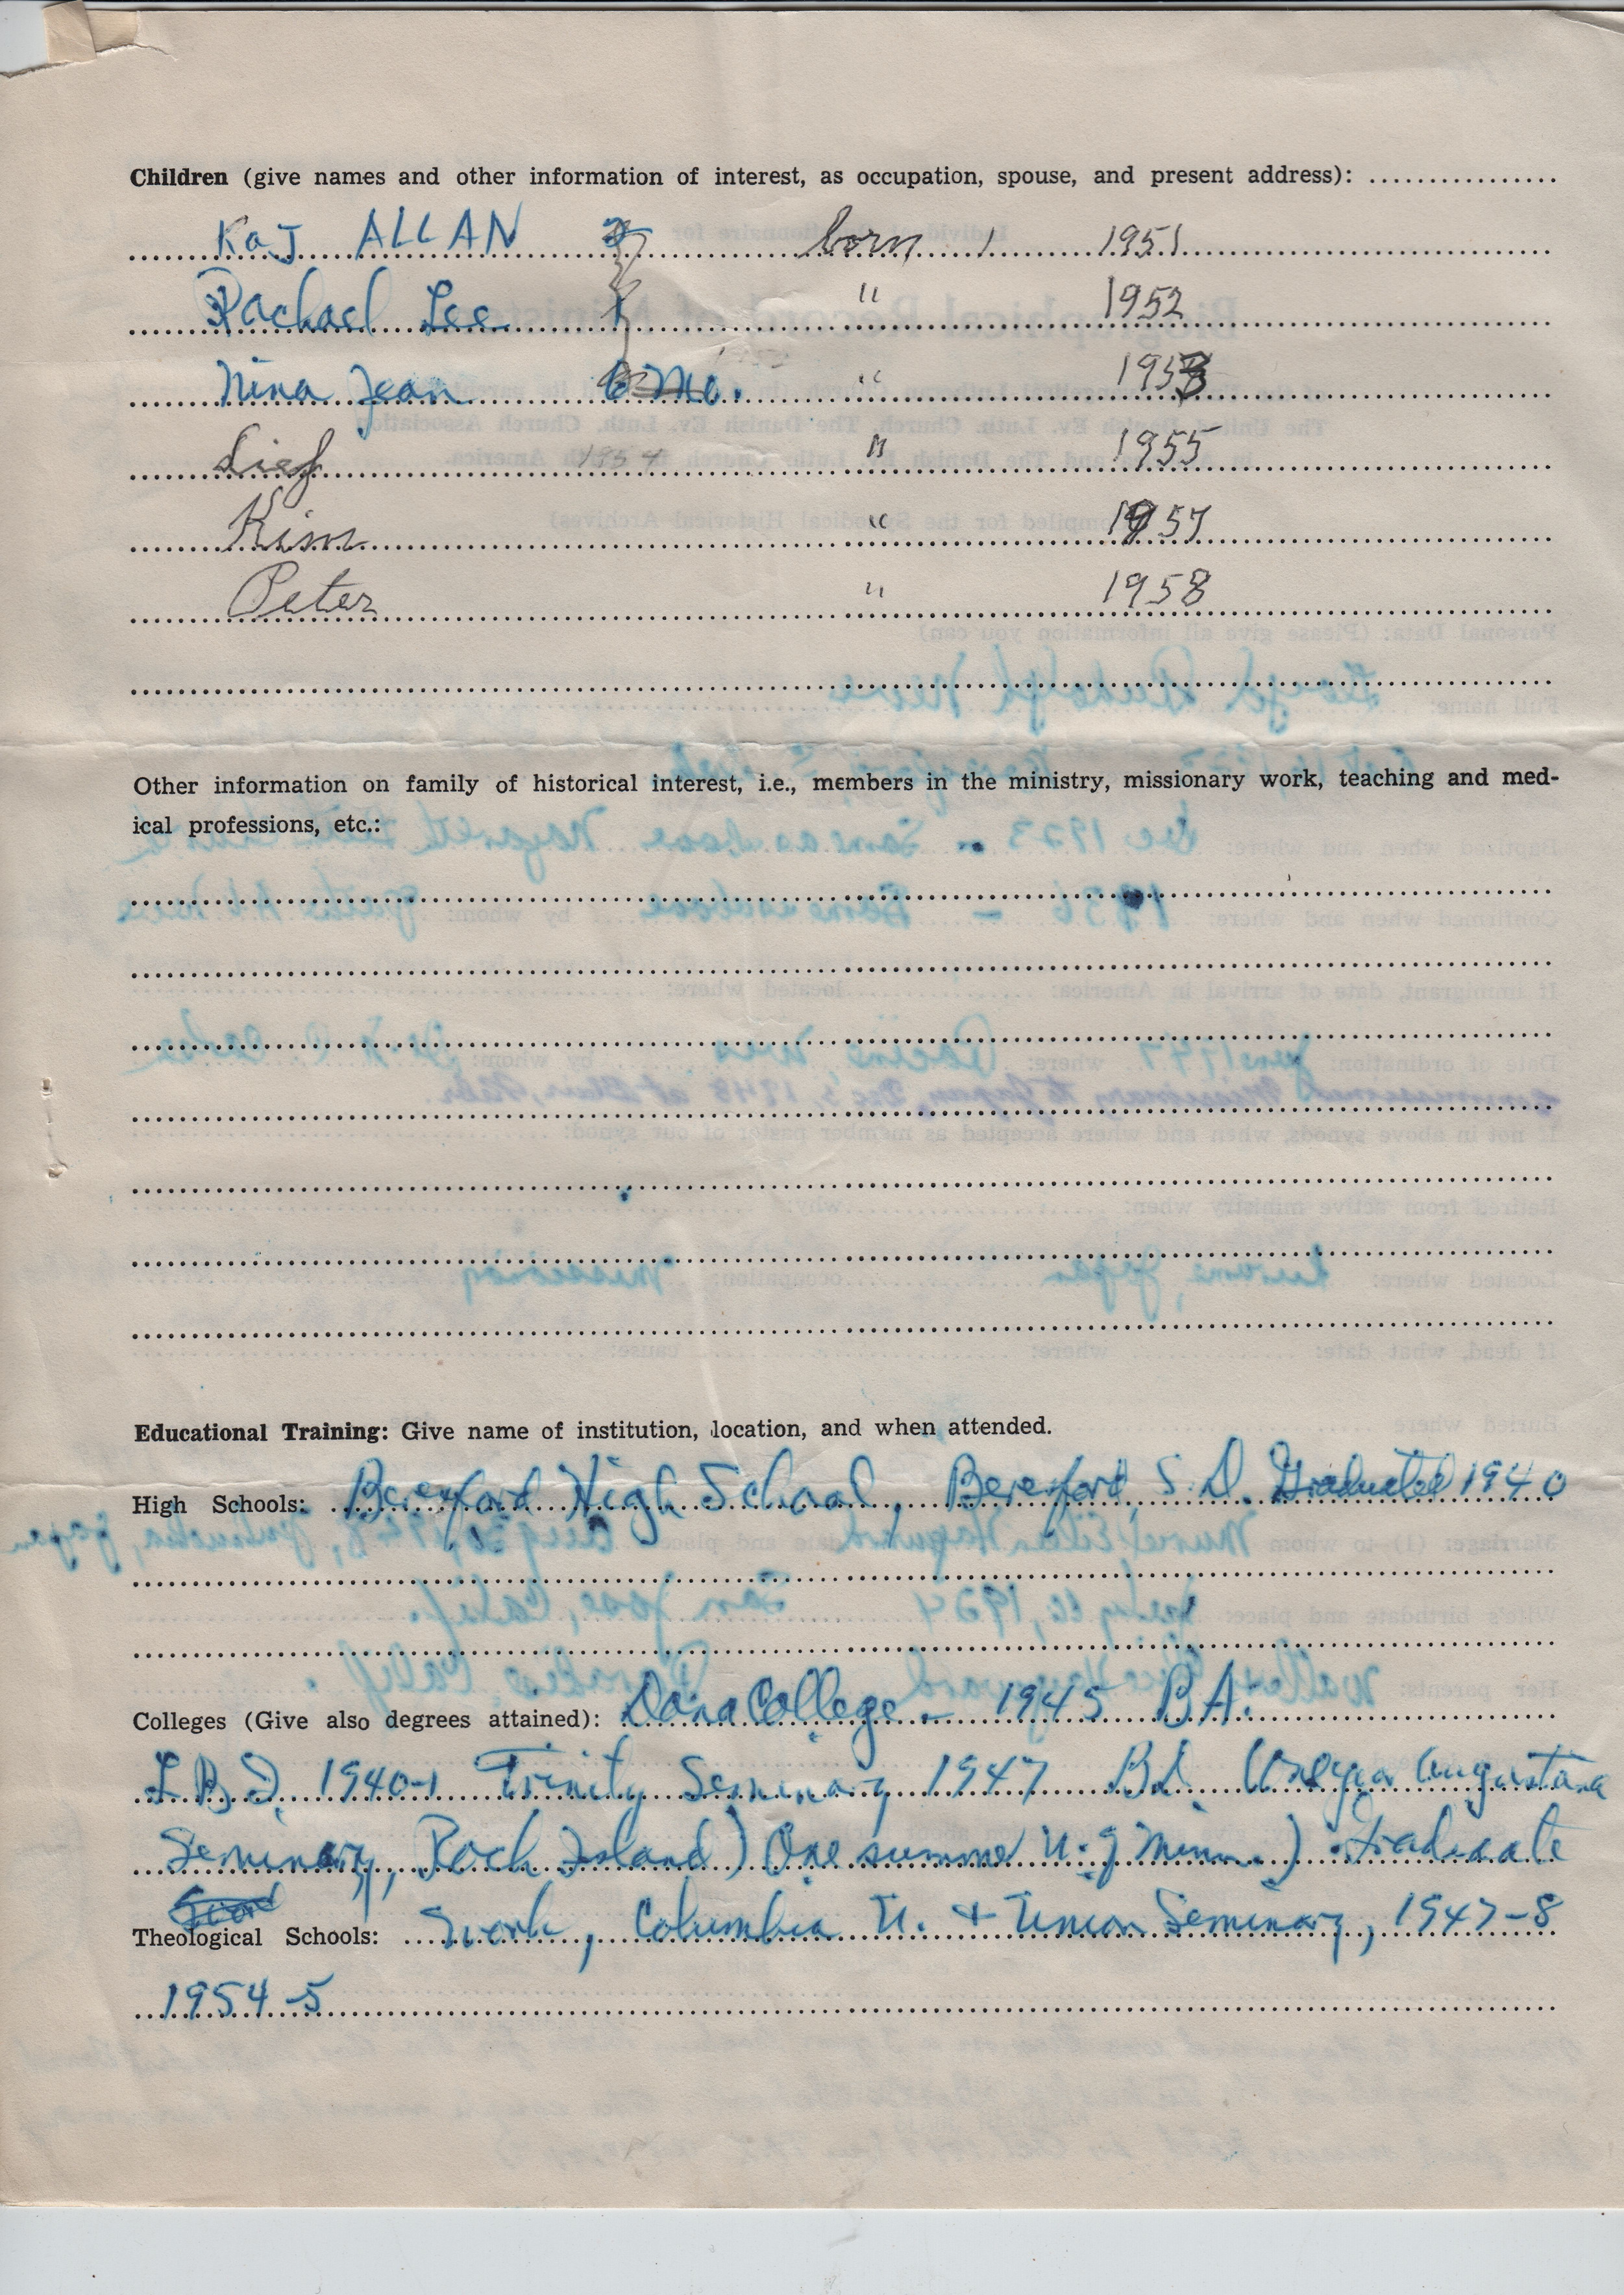 Children (give names and other information of interest, as occupation, spouse, and present address):
Kaj ALLAN 2 born 1951
Rachael Lee 1 " 1952
Nina Jean 6 mo. " 1953
Lief 1954 " 1955
Kim " 1957
Peter " 1958
Other information on family of historical interest, i.e., members in the ministry, missionary work, teaching and med-
ical professions, etc.:
Educational Training: Give name of institution, location, and when attended.
High Schools: Beresford High School, Beresford S.D. Graduated 1940
Colleges (Give also degrees attained): Dana College - 1945 BA.
1940-1 Trinity Seminary 1947 B.D. (1 year Augustana
Seminary, Rock Island) One summer U. of Minn.) Graduate
Theological Schools: Work, Columbia U. + Union Seminary, 1947-8
1954-5